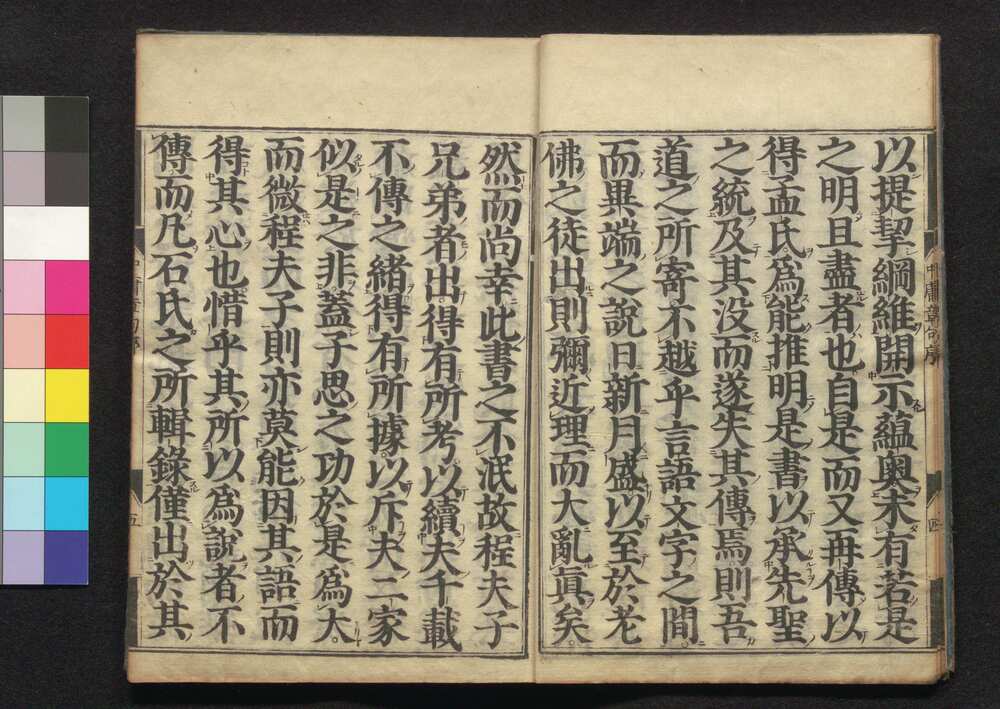 以提挈綱維開示蘊奧未有若是
之明且盡者也自是而又再傳以
得孟氏爲能推明是書以承先聖
之統及其没而遂失其傳焉則吾
道之所寄不越乎言語文字之間
而異端之說日新月盛以至於老
佛之徒出則彌近理而大亂眞矣
然而尚幸此書之不泯故程夫子
兄弟者出得有所考以續夫千載
不傳之緒得有所據以斥夫二家
似是之非蓋子思之功於是爲大
而微程夫子則亦莫能因其語而
得其心也惜乎其所以爲說者不
傳而凡石氏之所輯錄僅出於其
中庸章句序
四
五